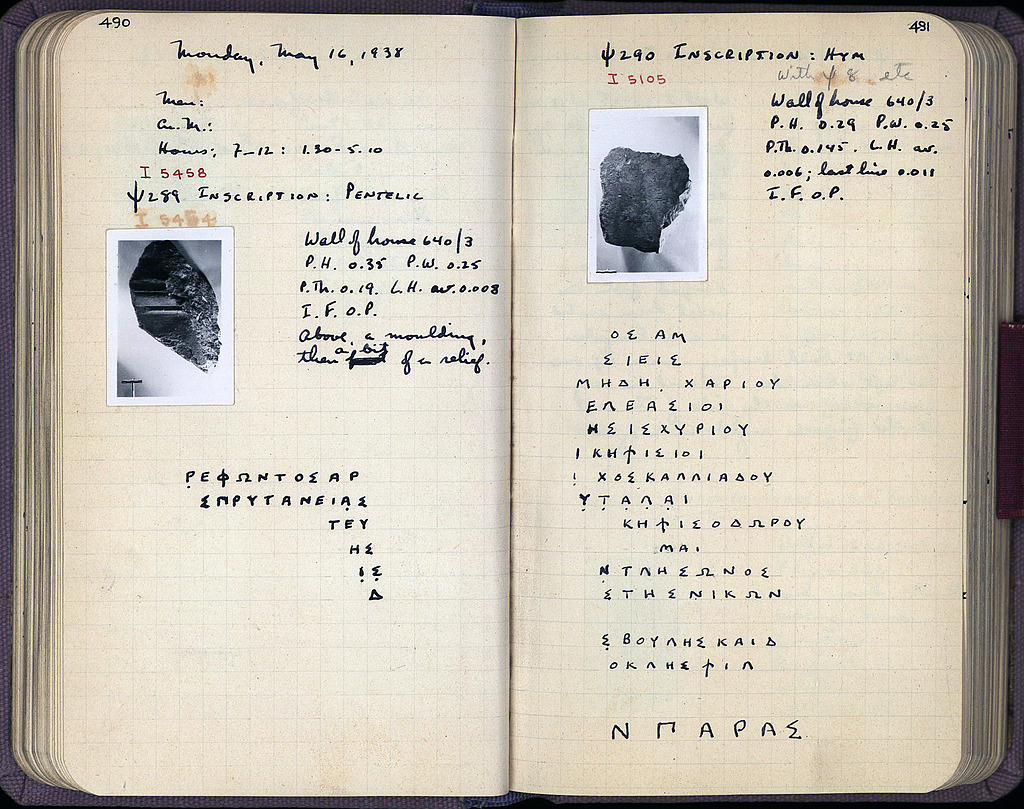 490
Monday, May 16, 1938
Men:
Hours: 7-12: 1.30-5.10
I 5458
Ψ289 INSCRIPTION: PENTELIC
I 5454
Wall of house 640/3
P.H. 0.35 P.W. 0.25
P.Th. 0.19. L.H. av. 0.008
I. F. O. P.
Above, a moulding,
then a bit of a relief.
ΡΕΦΩΝΤΟΣΑΡ
ΣΠΡΥΤΑΝΕΙΑΣ
ΤΕΥ
ΗΣ
ΙΣ
Δ
491
Ψ290 INSCRIPTION: HYM
I 5105
With Ψ 8 etc
Wall of house 640/3
P.H. 0.29 P.W. 0.25
P.Th. 0.145. L.H. av.
0.006; last line 0.011
I. F. O. P.
ΟΣ ΑΜ
ΣΙΕΙΣ
ΜΗΔΗ ΧΑΡΙΟΥ
ΕΛΕΑΣΙΟΙ
ΗΣΙΣΧΥΡΙΟΥ
ΙΚΗΦΙΣΙΟΙ
ΙΧΟΣΚΑΛΛΙΑΔΟΥ
ΥΤΑΛΑΙ
ΚΗΦΙΣΟΔΩΡΟΥ
ΜΑΙ
ΝΤΛΗΣΩΝΟΣ
ΣΤΗΣΝΙΚΩΝ
ΣΒΟΥΛΗΣΚΑΙΔ
ΟΚΛΗΣΦΙΛ
ΝΠΑΡΑΣ